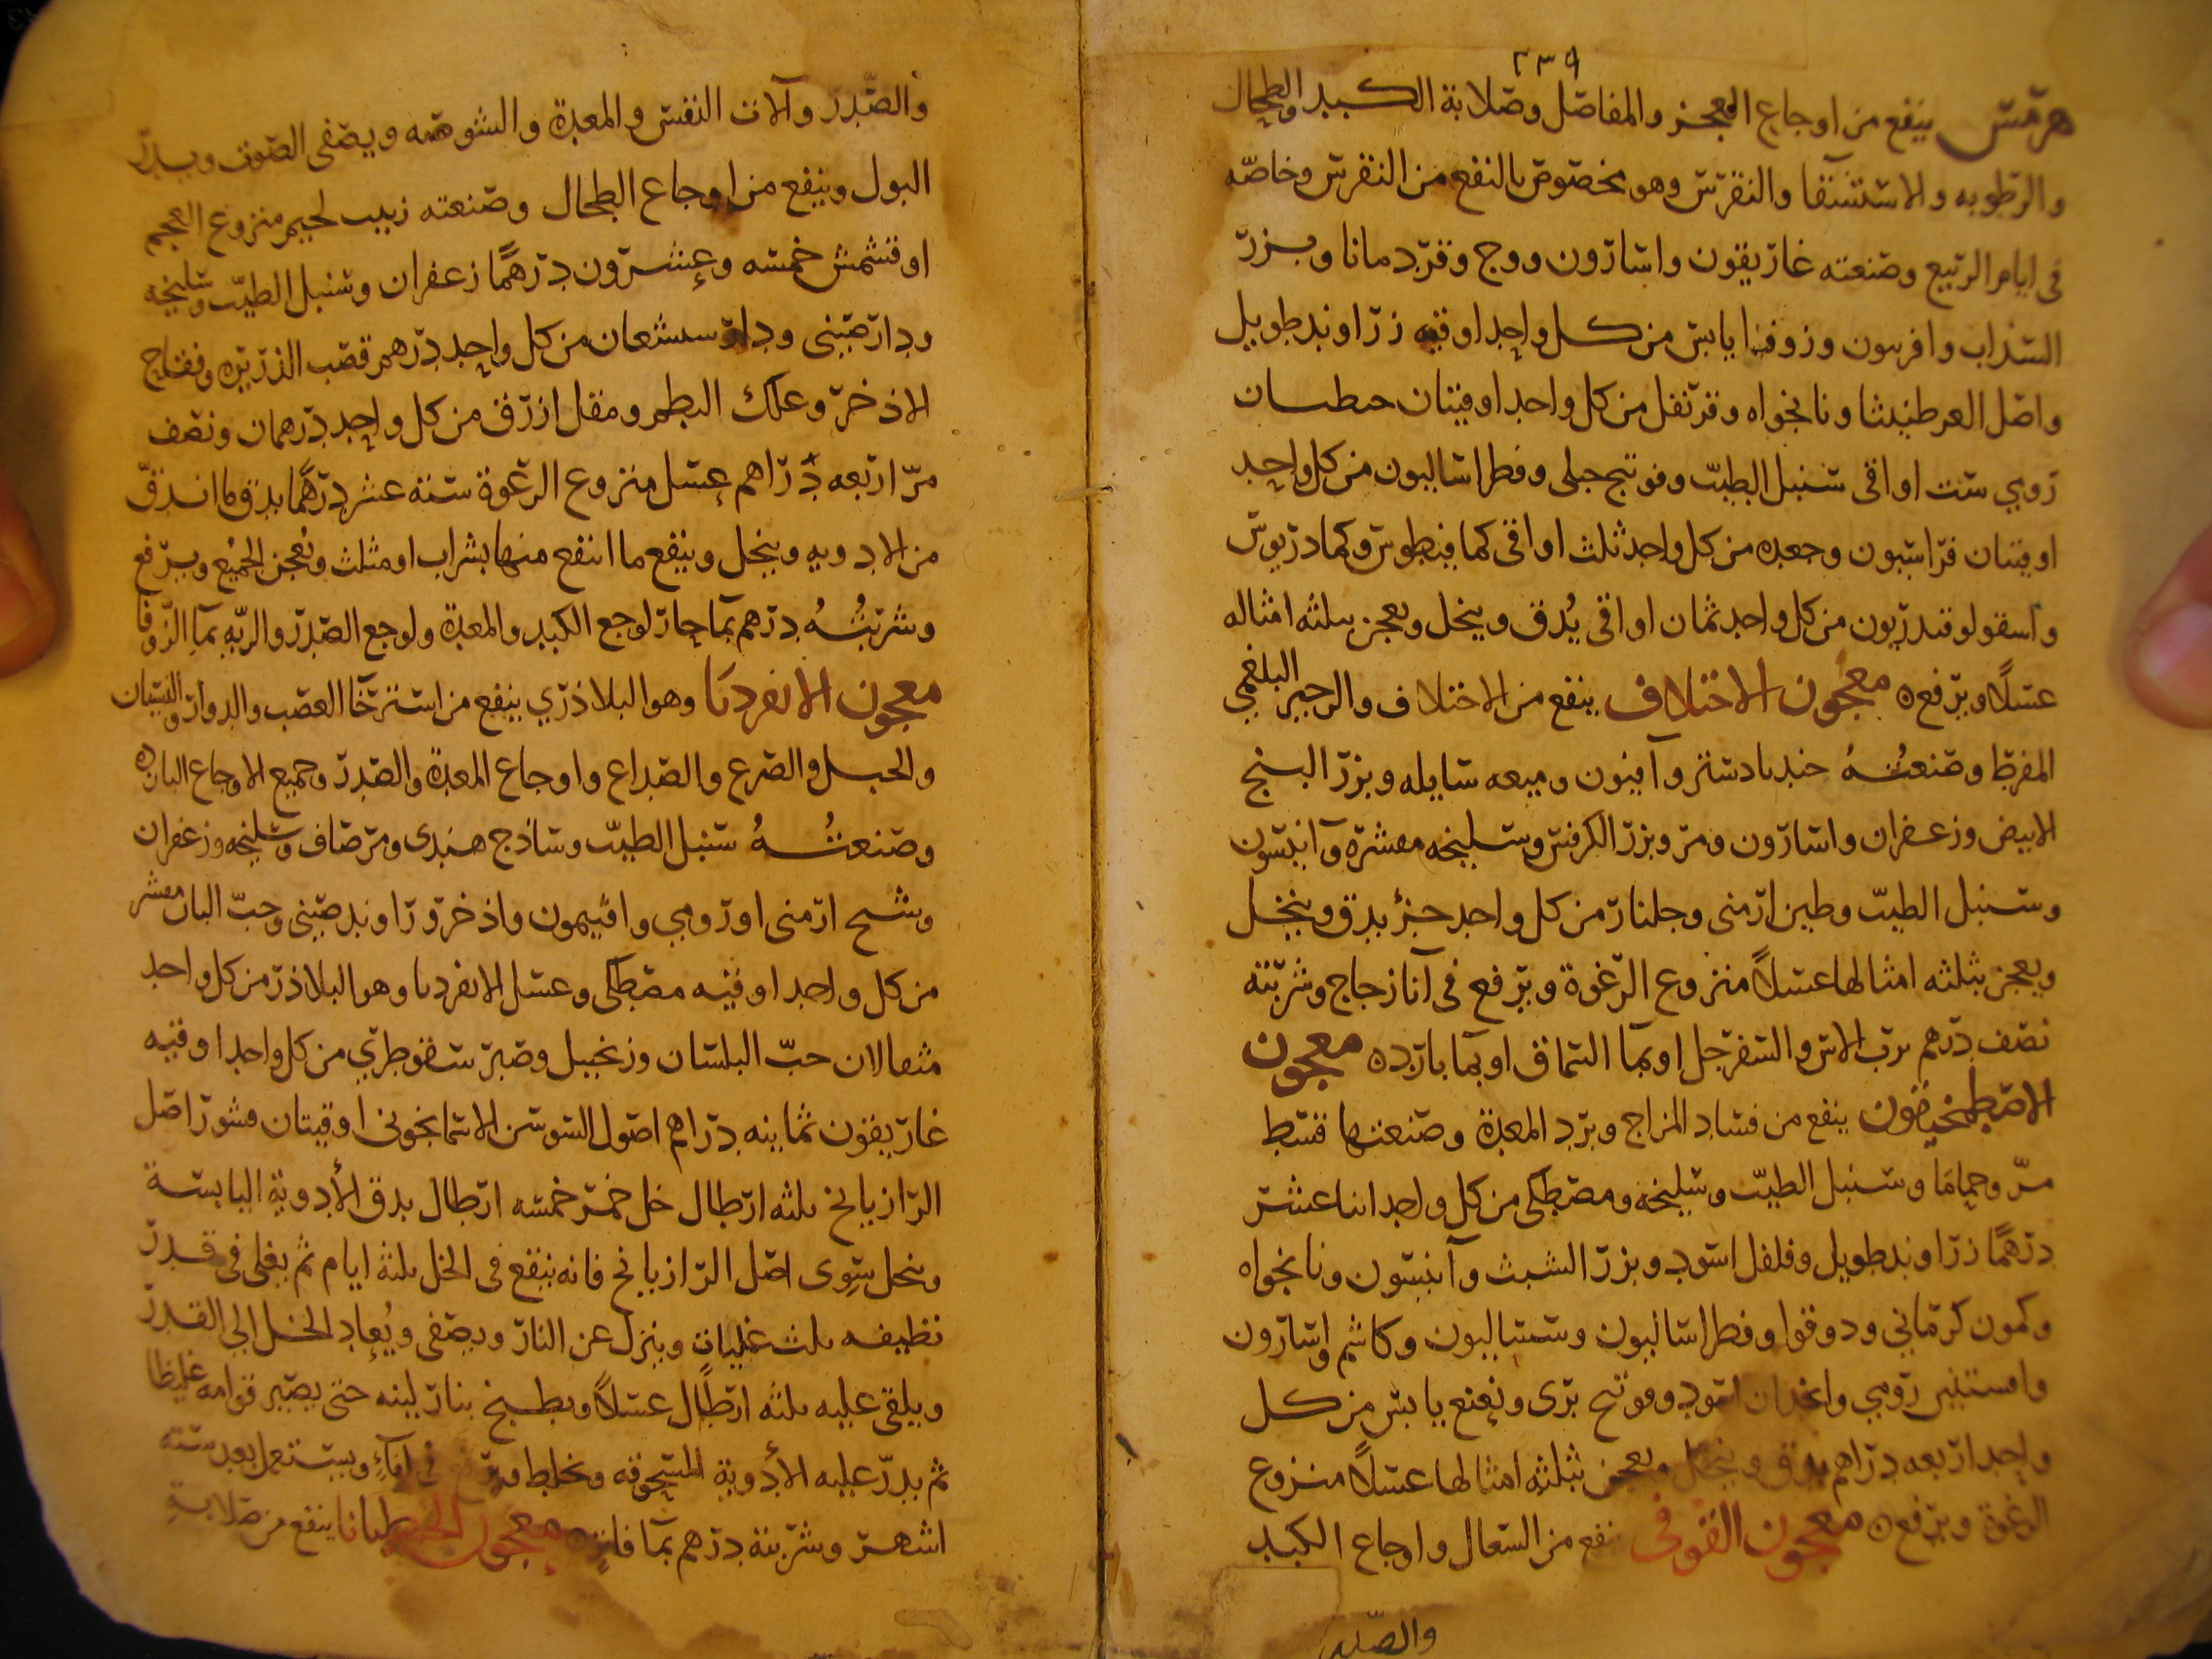 ٢٣٩
هرمس ينفع من اوجاع العجز والمفاصل وصلابة الكبد والطحال
والرطوبه والاستسقا والنقرس وهو مخصوص بالنفع من النقرس وخاصّه
فى ايام الربيع وصنعته غاريقون واسارون ووج وقردمانا وبزر
السذاب وافربيون وزوفا يابس من كل واحد اوقيه زراوند طويل
واصل العرطنيثا ونانخواه وقرنفل من كل واحد اوقيتان حطيانا
رومي ست اواقى سنبل الطيب وفوتنج جبلى وفطراساليون من كل واحد
اوقيتان فراسيون وجعده من كل واحد ثلث اواقى كمافيطوس وكمادريوس
واسقولوقندريون من كل واحد ثمان اواقى يُدق وينخل ويعجن بثلثه امثاله
عسلًا ويرفع ه معجُون الاختلاف ينفع من الاختلاف والزحير البلغمي
المفرط وصنعتُهُ جندبادستر وآفيون وميعه سايله وبزر البنج
الابيض وزعفران واسارون ومر وبزر الكرفس وسليخه مقشره وآنيسون
وسنبل الطيب وطين ارمنى وجلنار من كل واحد جزؤ يدق وينخل
ويعجن بثلثه امثالها عسلًا منزوع الرغوة ويرفع فى آنا زجاج وشربته
نصف درهم برب الاس والسفرجل او بمآ السماق او بمآ بارد ه معجون
الاصطمخيقون ينفع من فساد المزاج وبرد المعدة وصنعتها قسط
مرّ وحماما وسنبل الطيب وسليخه ومصطكى من كل واحد اثنا عشر
درهمًا زراوند طويل وفلفل اسود وبزر الشبث وآنيسون ونانخواه
وكمون كرمانى ودوقوا وفطراساليون وسساليون وكاشم واسارون
وافسنتين رومي وانجدان اسود وفوتنج برى ونعنع يابس من كل
واحد اربعه دراهم يدق وينخل ويعجن بثلثه امثالها عسلًا منزوع
الرغوة ويرفع ه معجون الفوفى ينفع من السعال واوجاع الكبد
والصدر
والصّدر وآلات النفس والمعدة والشوصه ويصفى الصوت ويدرّ
البول وينفع من اوجاع الطحال وصنعته زبيب لحيم منزوع العجم
او قشمش خمسه وعشرون درهمًا زعفران وسنبل الطيب وسليخه
ودارصينى ودارسشعان من كل واحد درهم قصب الذريره وفقاح
الاذخر وعلك البطم ومقل ازرق من كل واحد درهمان ونصف
مرّ اربعه دراهم عسل منزوع الرغوة ستة عشر درهمًا يدق ما اندقّ
من الادويه وينخل وينقع ما انتقع منها بشراب او مثلث ويُعجن الجميُع ويرفع
وشربتُهُ درهم بمآ حار لوجع الكبد والمعدة ولوجع الصّدر والريه بمآ الزوفا
معجون الانقرديا وهو البلاذري ينفع من استرخآ العصب والدوار والنسيان
والخبل والصرع والصداع واوجاع المعدة والصدر وجميع الاوجاع البارده
وصنعتُهُ سنبل الطيب وساذج هندى ومر صاف وسليخه وزعفران
وشيح ارمنى او رومي وافتيمون واذخر وراوند صينى وحبّ البان مقشر
من كل واحد اوقيه مصطكى وعسل الانقرديا وهو البلاذر من كل واحد
مثقالان حبّ البلسان وزنجبيل وصبر سقوطري من كل واحد اوقيه
غاريقون ثمانيه دراهم اصول السوسن الاسمانجونى اوقيتان قشور اصل
الرازيانج ثلثه ارطال خل خمر خمسه ارطال يدق الأدوية اليابسة
وينخل سوى اصل الرازيانج فانه ينقع فى الخل ثلثة ايام ثم يغلى فى قدر
نظيفه ثلث غليات وينزل عن النار ويصفى ويُعاد الخل الى القدر
ويلقى عليه ثلثه ارطال عسلًا ويطبخ بنار لينه حتى يصير قوامه غليظا
ثم يدرّ عليه الأدوية المسحوقه ويخلط ويرفع فى انآءٍ ويستعمل بعد سته
اشهر وشربته درهم بمآ فاتر ه معجون ينفع من صلابة